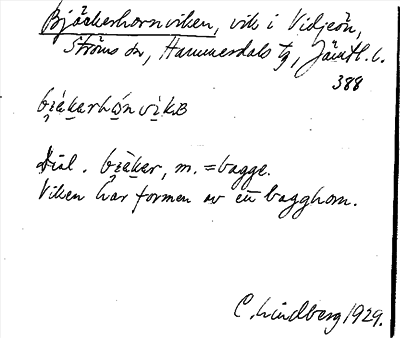 Bjäckerhornviken, vik i Vidjeön,
Ströms sn, Hammerdals tg, Jämtl. l.
388
Dial. bi̯ä̀kar, m. = bagge.
Viken har formen av ett bagghorn.
C. Lindberg 1929.